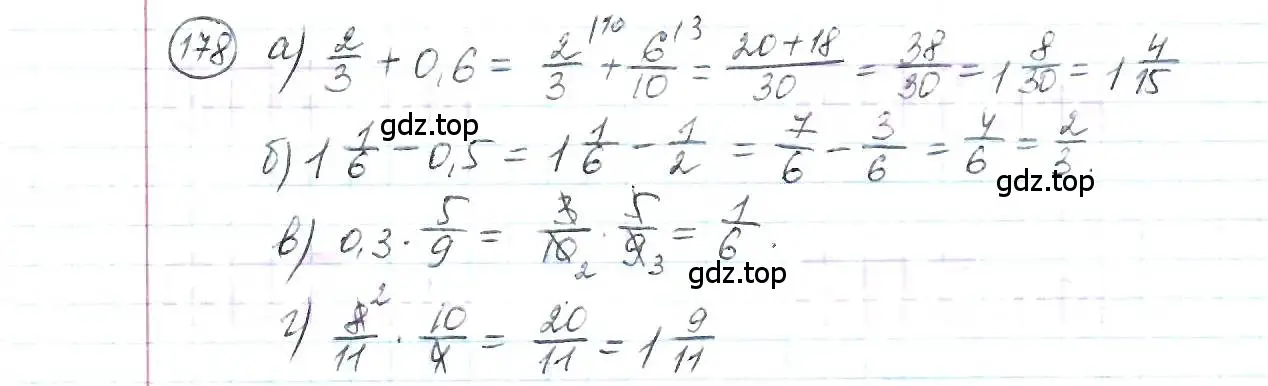 178 а) 2/3 + 0,6 = 2/3 |10 + 6/10 |3 = 20+18/30 = 38/30 = 1 8/30 = 1 4/15
gdz.top
б) 1 1/6 - 0,5 = 1 1/6 - 1/2 = 7/6 - 3/6 = 4/6 = 2/3.
gdz.top
в) 0,3 · 5/9 = 3/10 2 · 5/9 3 = 1/6.
gdz.top
г) 8 2/11 · 10/4 = 20/11 = 1 9/11